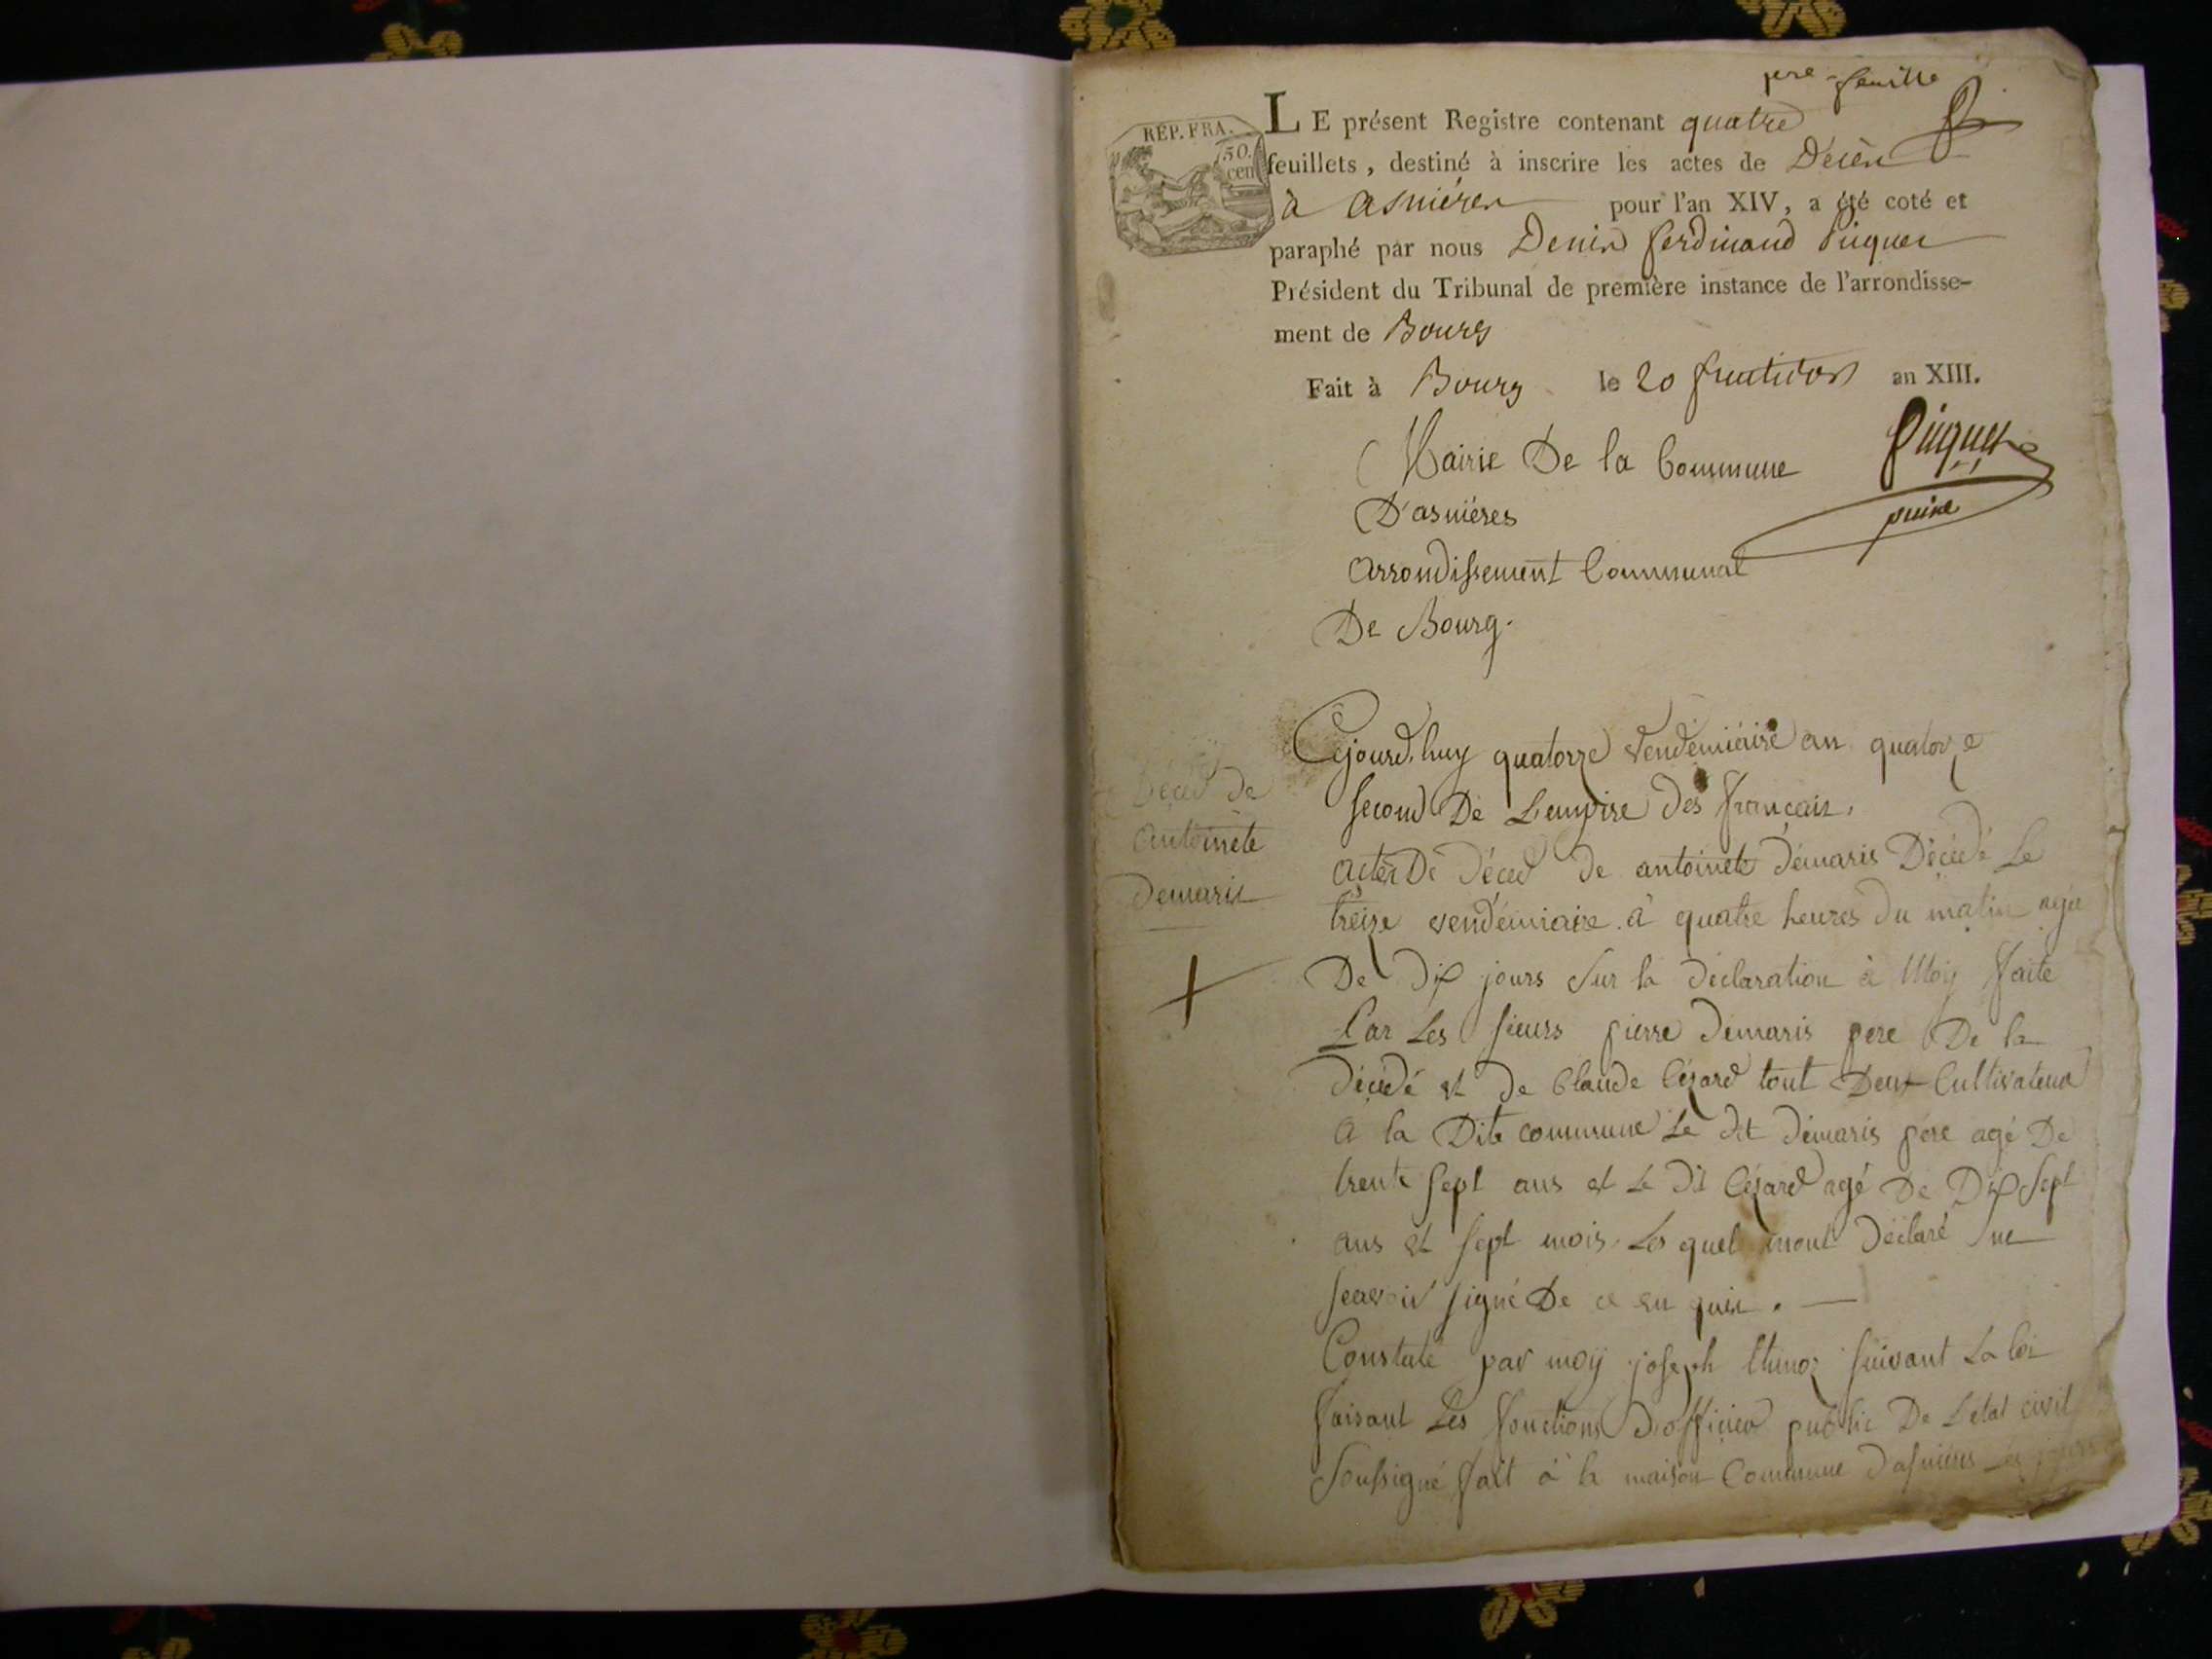 pre feuille
RÉP. FRA.
50.
cen
LE présent Registre contenant quatre
feuillets, destiné à inscrire les actes de Décès
à asnières pour l'an XIV, a été coté et
paraphé par nous Denis ferdinand Piquet
Président du Tribunal de première instance de l'arrondisse-
ment de Bourg
Fait à Bourg le 20 fructidor an XIII.
Piquet
Mairie De la Commune
D'asnières
arrondissement Communal
De Bourg.
Cejourd'huy quatorze vendémiaire an quatorze
second De L'empire des français.
Décès de
antoinete
Demaris
acte De Décès de antoinete démaris Décédé Le
treize vendémiaire à quatre heures du matin agée
De dix jours sur la déclaration à Moy faite
Par Les sieurs pierre démaris pere De la
décédé et de Claude Cézard tout Deux Cultivateur
à la Dite commune Le dit démaris pere agé De
trente sept ans et Le dit Cézard agé De Dix sept
ans et sept mois Les quel mont déclaré ne
scavoir signé De ce en quis.
Constaté par moy joseph suivant La loi
faisant Les fonctions d'officier public De L'etat civil
Soussigné fait à la maison Commune d'asnieres Les jours